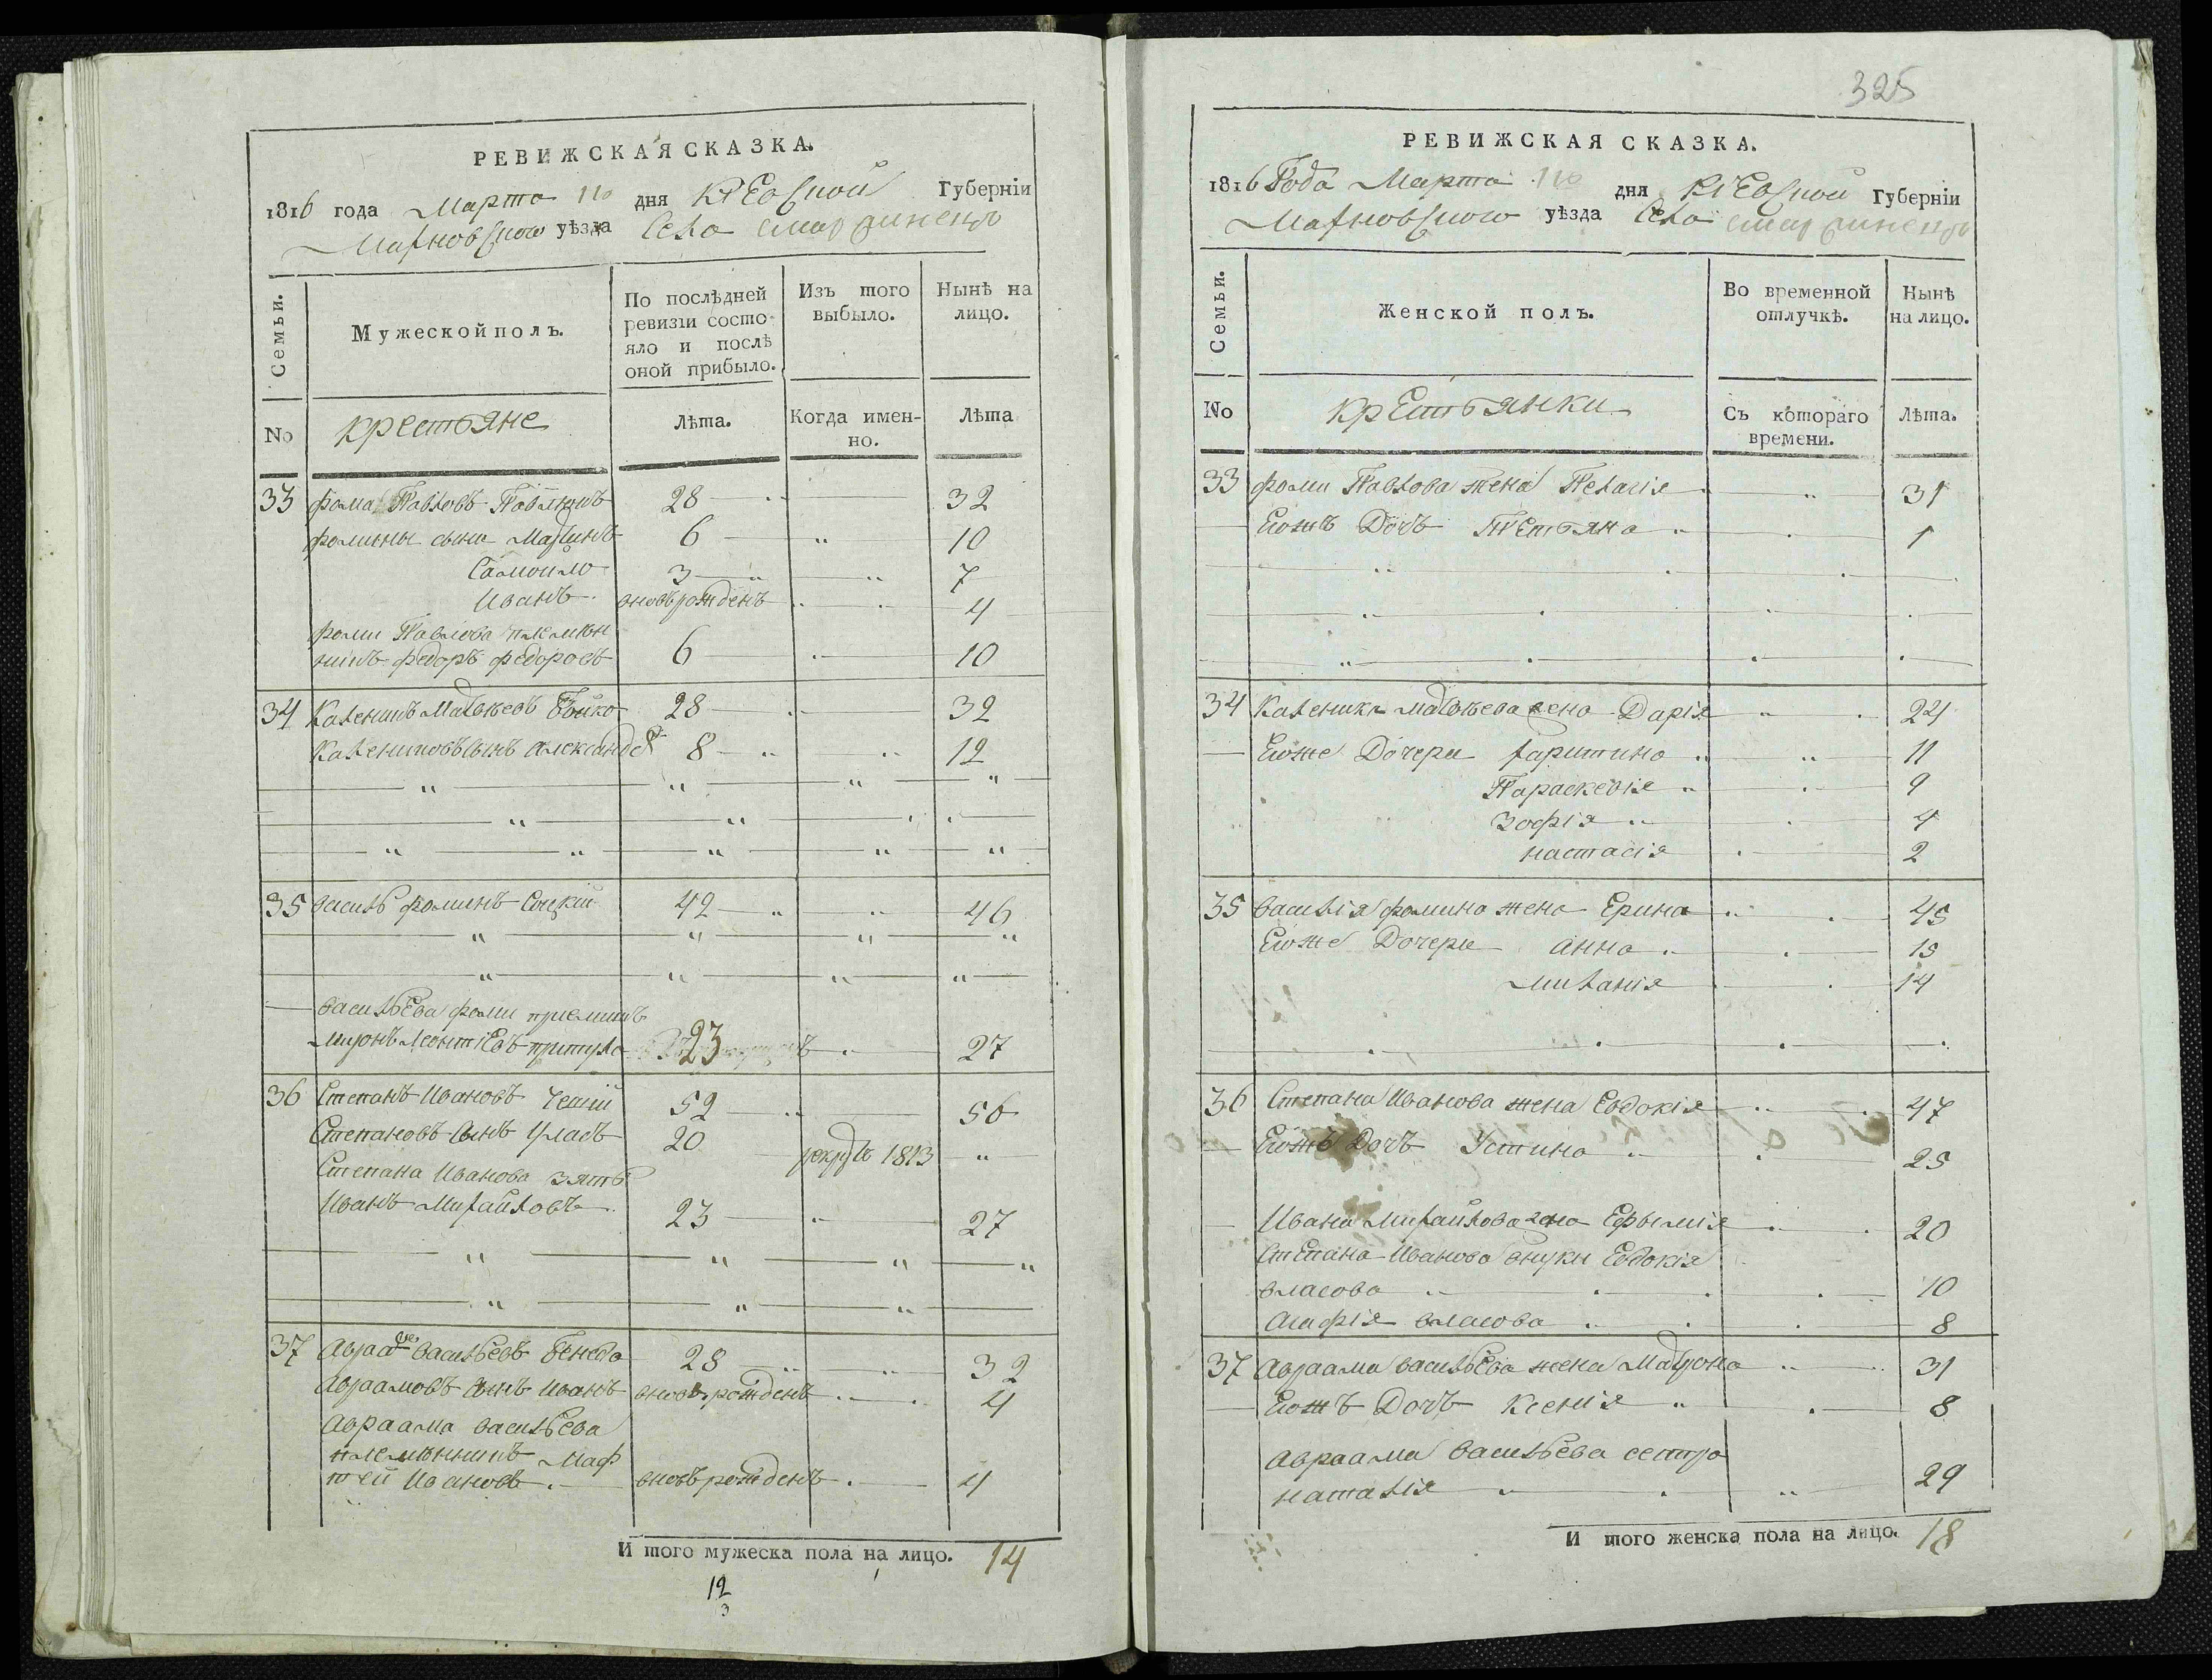 РЕВИЖСКАЯ СКАЗКА.
1816 года Марта дня Кіевской Губерніи
Махновского уѣзда Села
Семьи.
Мужеской полъ.
По послѣдней ревизіи состо-
яло и послѣ
оной прибыло.
Изъ того
выбыло.
Нынѣ на
лицо.
No
крестьяне
Лѣта.
Когда имен-
но.
Лѣта
33 фома Павловъ 28 32
фомины сыны Мартинъ 6 10
Самойло 3 7
Иванъ вновь рожденъ 4
фоми Павлова племѣн
никъ федоръ федоровъ 6 10
34 Каленикъ Матвѣевъ Бойко 28 32
Калениковъ сынъ Александръ 8 12
35 василь фоминъ Соцкій 42 46
васильева фоми приемишъ
миронъ Леонтіевъ притула 23 27
36 Степанъ Ивановъ 52 56
Степановъ сынъ Уласъ 20 рекрутъ 1813
Степана Иванова зять
Иванъ Михайловъ 23 27
37 Авраамъ васильевъ Бенеда 28 32
Авраамовъ сынъ Иванъ вновь рожденъ 4
Авраама васильева
племѣнникъ Маф
тей Ивановъ вновь рожденъ 4
И того мужеска пола на лицо. 14
12
3
325
РЕВИЖСКАЯ СКАЗКА.
1816 Года Марта дня Кіевской Губерніи
Махновского уѣзда Села
Семьи.
Женской полъ.
Во временной
отлучкѣ.
Нынѣ
на лицо.
No
крестьянки
Съ котораго
времени.
Лѣта.
33 фоми Павлова жена Пелагія 31
Еіожъ Дочъ Тетьяна 1
34 Каленика матвѣева жена Дарія 24
Еіоже Дочери харитина 11
Параскевія 9
Зофія 4
настасія 2
35 василія фомина жена Ерина 45
Еіоже Дочери анна 15
миланія 14
36 Степана Иванова жена Евдокія 47
Еіожъ Дочъ Устина 25
Ивана михайлова жена Ефимія 20
Степана Иванова внуки Евдокія
власова 10
Агафія власова 8
37 Авраама васильева жена Матрона 31
Еіожъ Дочъ Ксенія 8
Авраама васильева сестра
наталія 29
И того женска пола на лицо. 18